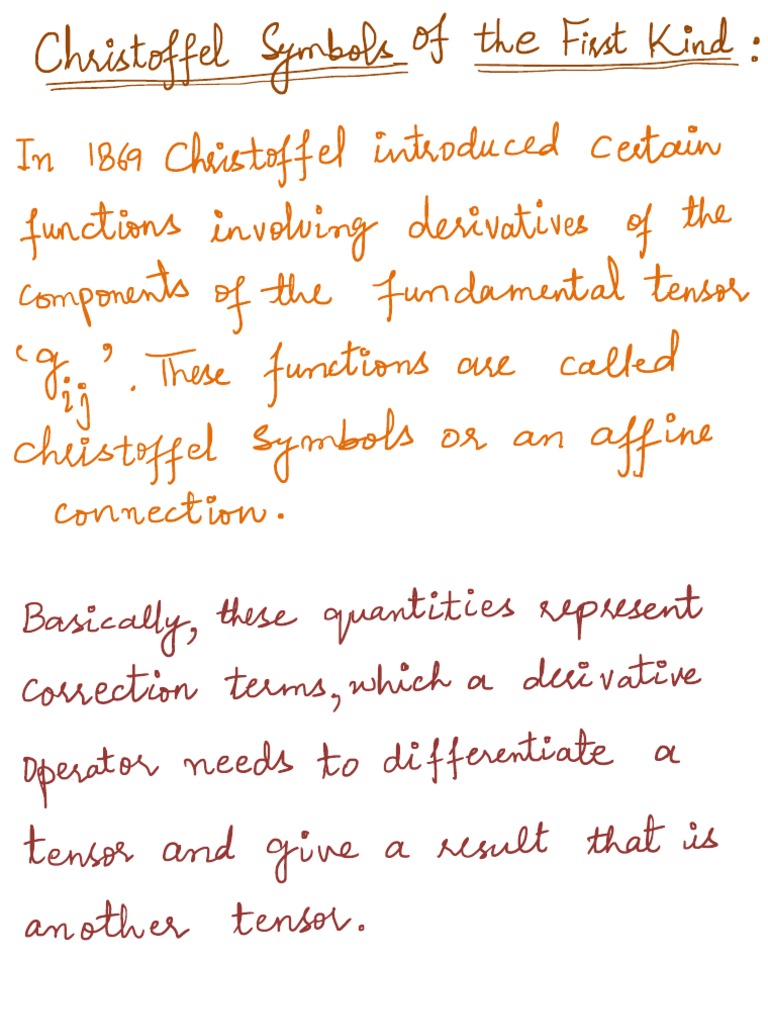 Christoffel Symbols of the First Kind:
In 1869 Christoffel introduced certain
functions involving derivatives of the
components of the fundamental tensor
'g_ij'. These functions are called
Christoffel symbols or an affine
connection.
Basically, these quantities represent
correction terms, which a derivative
operator needs to differentiate a
tensor and give a result that is
another tensor.